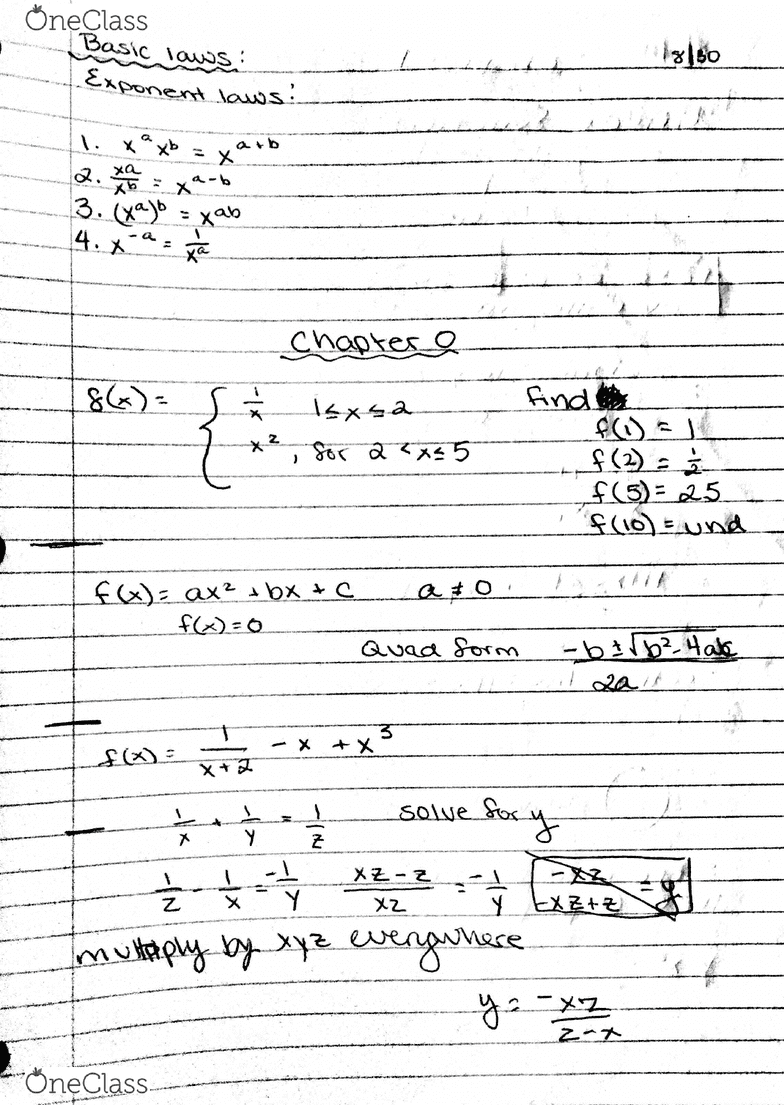 OneClass
Basic laws: 8/30
Exponent laws:
1. x^a x^b = x^(a+b)
2. x^a/x^b = x^(a-b)
3. (x^a)^b = x^(ab)
4. x^(-a) = 1/x^a
Chapter 0
f(x) = { 1/x 1≤x≤2
x², for 2<x≤5
find
f(1) = 1
f(2) = 1/2
f(5) = 25
f(10) = und
f(x) = ax² + bx + c a ≠ 0
f(x) = 0
Quad form (-b ± √(b² - 4ac))/2a
f(x) = 1/(x+2) - x + x³
1/x + 1/y = 1/z solve for y
1/z - 1/x = -1/y (xz-z)/xz = -1/y -xz/(-xz+z) = y
multiply by xyz everywhere
y = -xz/(z-x)
OneClass